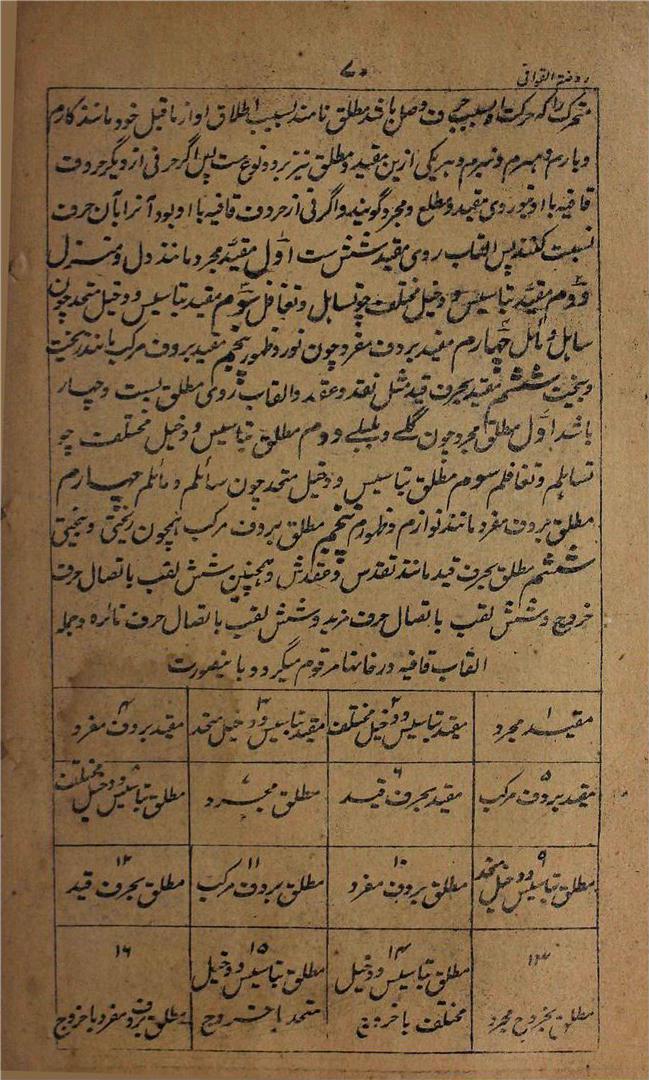 روضة القوافی
۷۰
متحرک را که حرکت او بسبب حرف وصل باشد مطلق نامند بسبب اطلاق او از ماقبل خود مانند کارم
و بارم و مهرم و نبرم و هر یکی ازین مقید و مطلق نیز بر دو نوع ست پس اگر حرفی از دیگر حروف
قافیه با او نبود روی مقید و مطلق و مجرد گویند و اگر حرفی از حروف قافیه با او بود آنرا بآن حرف
نسبت کنند پس القاب روی مقید شش ست اول مقید مجرد مانند دل و منزل
دوم مقید بتاسیس و دخیل مختلف چو تساہل و تغافل سوم مقید بتاسیس و دخیل متحد چون
سایل و مایل چهارم مقید بردف مفرد چون نور و ظهور پنجم مقید بردف مرکب مانند ریخت
و بیخت ششم مقید بحرف قید مثل نقد و عقد و القاب روی مطلق بست و چهار
باشد اول مطلق مجرد چون گلے و بلبلے دوم مطلق بتاسیس و دخیل مختلف چو
تساہلم و تغافلم سوم مطلق بتاسیس و دخیل متحد چون سائلم و مائلم چهارم
مطلق بردف مفرد مانند نوازم و ظهورم پنجم مطلق بردف مرکب همچون ریختی و بیختی
ششم مطلق بحرف قید مانند نقدش و عقدش و همچنین شش لقب باتصال حرف
خروج و شش لقب باتصال حرف مزید و شش لقب باتصال حرف نائره و جمله
القاب قافیه در خانها مرقوم میگردد باینصورت
۱ مقید مجرد
۲ مقید بتاسیس و دخیل مختلف
۳ مقید بتاسیس و دخیل متحد
۴ مقید بردف مفرد
۵ مقید بردف مرکب
۶ مقید بحرف قید
۷ مطلق مجرد
۸ مطلق بتاسیس و دخیل مختلف
۹ مطلق بتاسیس و دخیل متحد
۱۰ مطلق بردف مفرد
۱۱ مطلق بردف مرکب
۱۲ مطلق بحرف قید
۱۳ مطلق بخروج مجرد
۱۴ مطلق بتاسیس و دخیل
مختلف با خروج
۱۵ مطلق بتاسیس و دخیل
متحد با خروج
۱۶ مطلق بردف مفرد با خروج